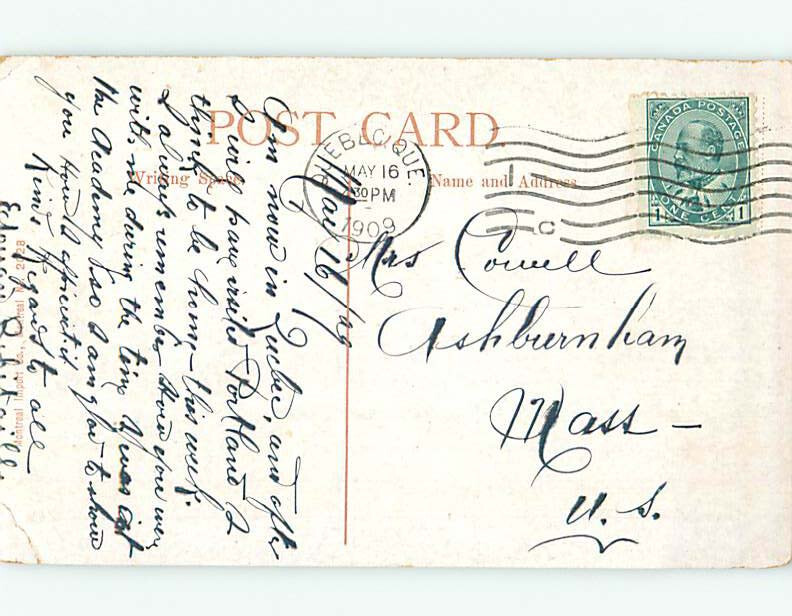 POST CARD.
Writing Space
Name and Address
QUEBEC, QUE.
MAY 16
30 PM
1909
CANADA POSTAGE
1 ONE CENT 1
C
May 16/09
Am now in Quebec, and after
I have visited Portland I
think to be home this week.
I always remember how you were
with me during the time I was at
the Academy &so I am glad to show
you how I appreciated
Kind Regards to all
Mrs Cowell
Ashburnham
Mass —
U. S.
Montreal Import Co., Montreal No.